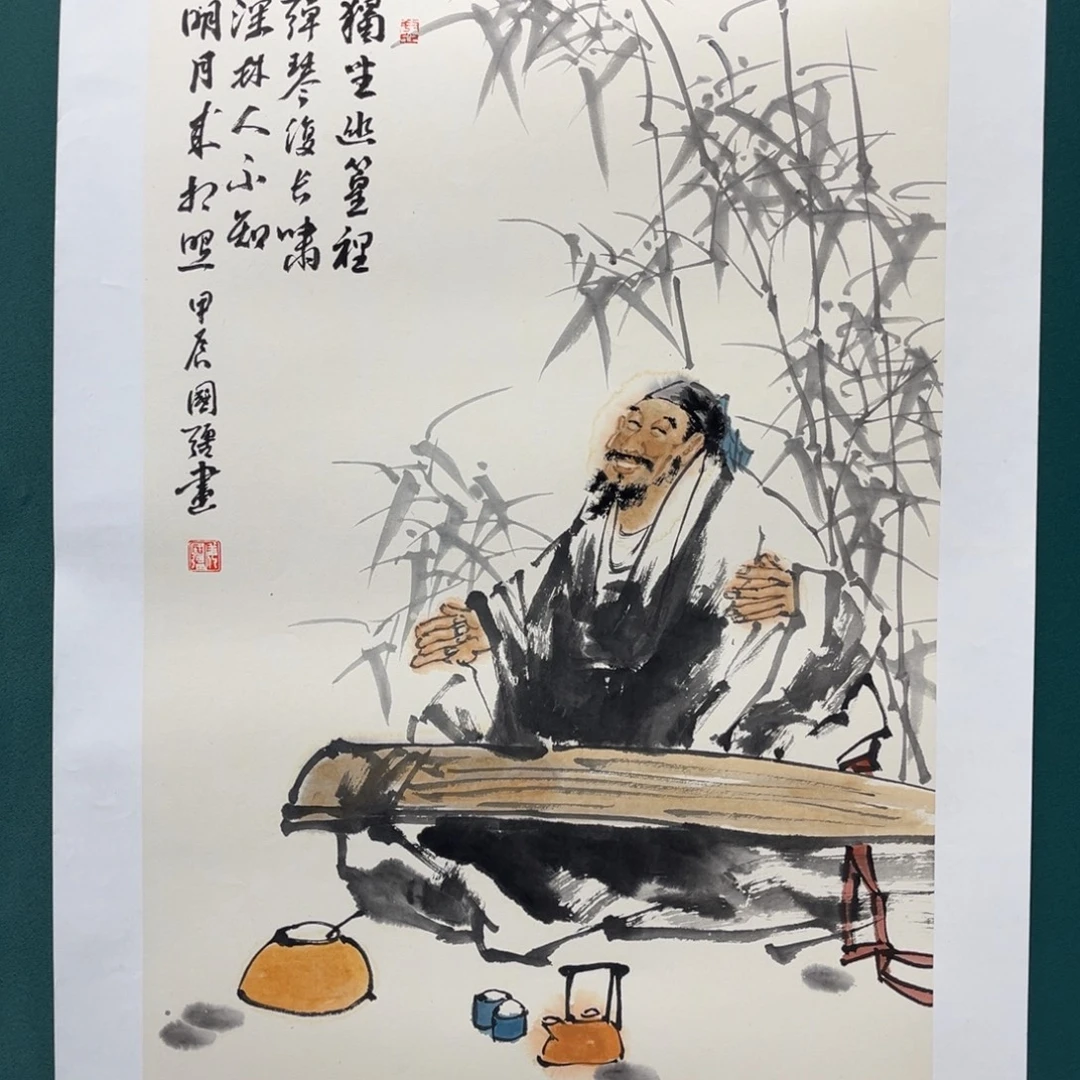 獨坐幽篁裡
彈琴復長嘯
深林人不知
明月來相照 甲辰國強畫